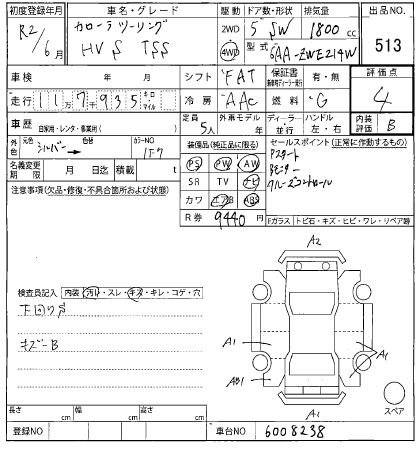 初度登録年月 車名・グレード 駆動 ドア数・形状 排気量 出品NO.
R2/6月 カローラツーリング 2WD 5 SW 1800cc 513
HV S TSS 4WD 型式 6AA-ZWE214W
車検 年 月 シフト FAT 保証書 有・無 評価点
走行 117935 キロ マイル 冷房 AAC 燃料 G 4
車歴 自家用・レンタ・事業用( ) 定員 5人 外車モデル 年 ディーラー 並行 ハンドル 左・右 内装評価 B
外色 元色 シルバー 色替 カラーNO 1F7
装備品(純正品に限る) セールスポイント(正常に作動するもの)
名義変更期限 月 日迄 積載 t
PS PW AW
SR TV ナビ
カワ エアB ABS
R券 9440円
Pスタート
Bモニター
クルーズコントロール
注意事項(欠品・修復・不具合箇所および状態)
Fガラス トビ石・キズ・ヒビ・ワレ・リペア跡
検査員記入 内装 汚れ・スレ・キズ・キレ・コゲ・穴
下回りS
キズーB
A2
A1
A1
AB1
A1
スペア
長さ cm 幅 cm 高さ cm
登録NO 車台NO 6008238